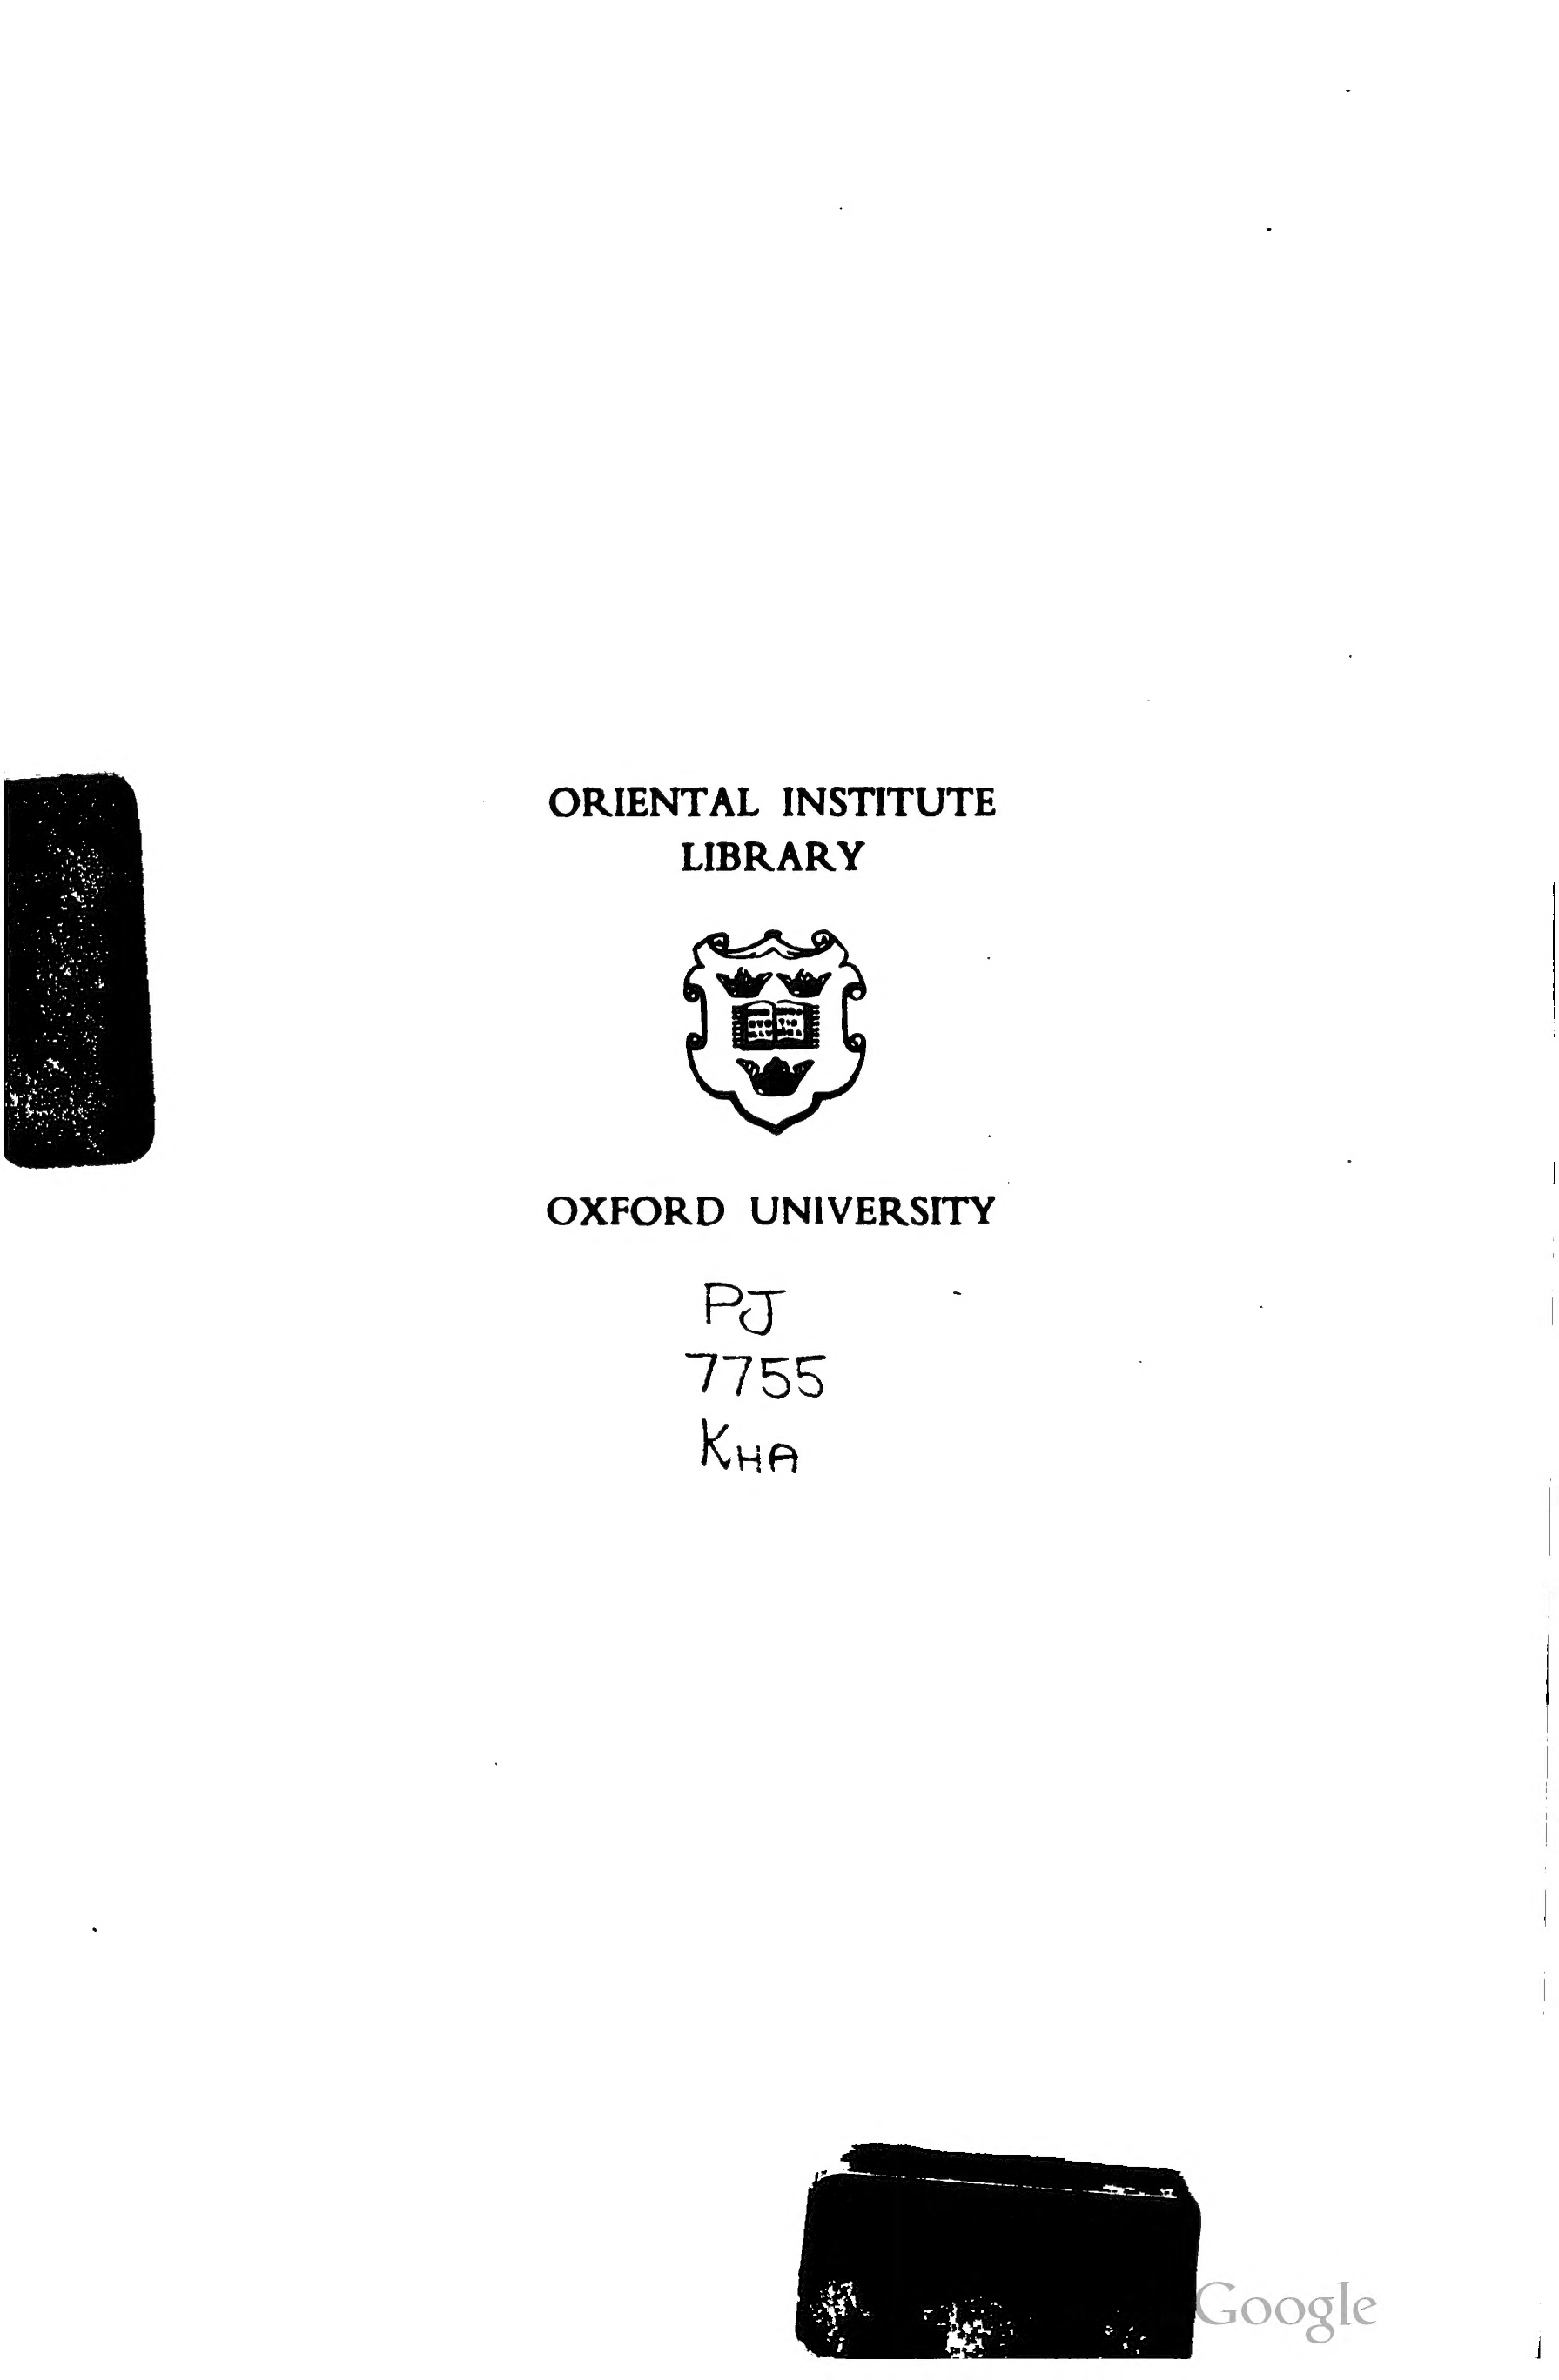 ORIENTAL INSTITUTE
LIBRARY
OXFORD UNIVERSITY
PJ
7755
KHA
Google